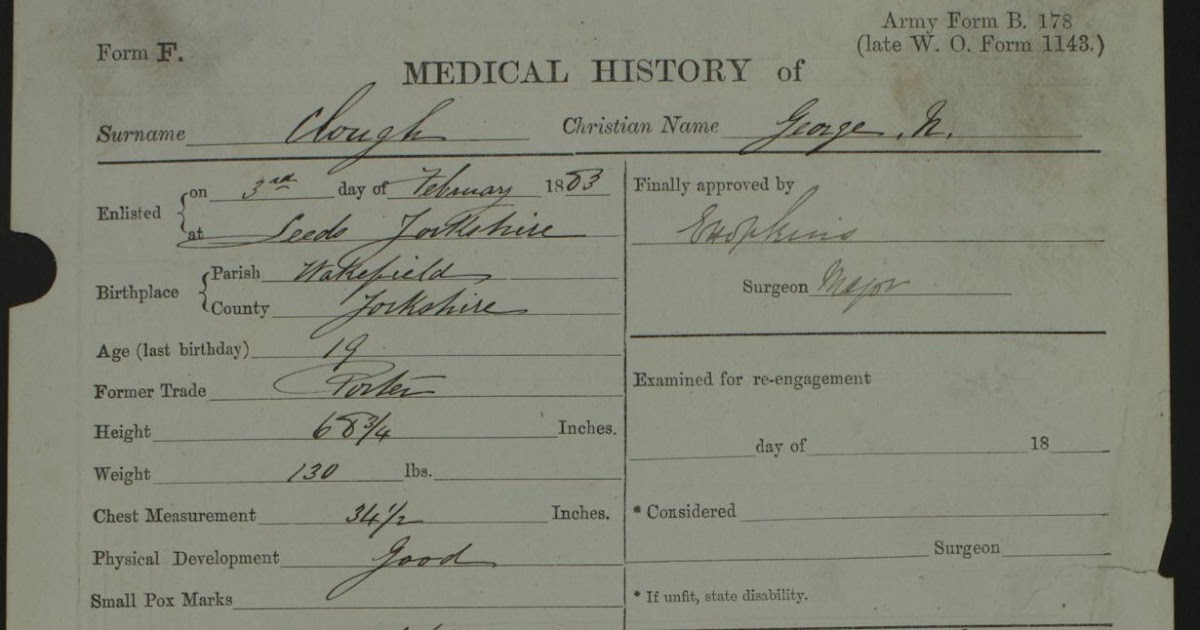 Army Form B. 178
Form F.
(late W. O. Form 1143.)
MEDICAL HISTORY of
Surname Clough Christian Name George. N.
Enlisted on 3rd day of February 1883
at Leeds Yorkshire
Birthplace Parish Wakefield
County Yorkshire
Age (last birthday) 19
Former Trade Porter
Height 68 3/4 Inches.
Weight 130 lbs.
Chest Measurement 34 1/2 Inches.
Physical Development Good
Small Pox Marks
Finally approved by
EHopkins
Surgeon Major
Examined for re-engagement
day of 18
* Considered
Surgeon
* If unfit, state disability.